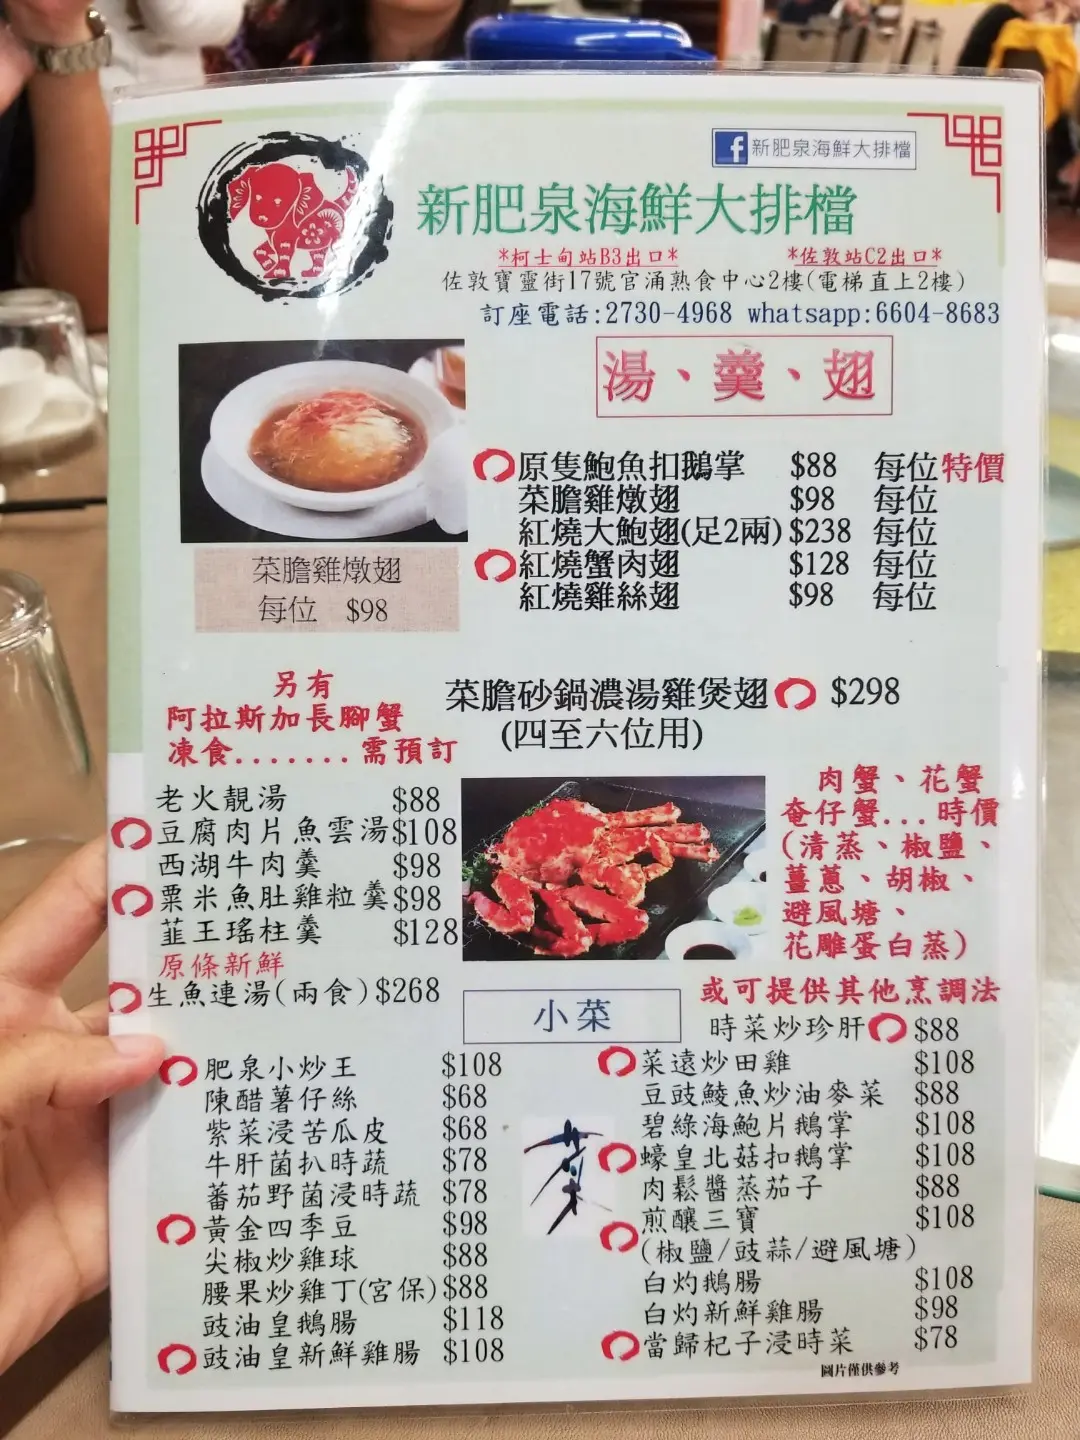 新肥泉海鮮大排檔
新肥泉海鮮大排檔
*柯士甸站B3出口* *佐敦站C2出口*
佐敦寶靈街17號官涌熟食中心2樓(電梯直上2樓)
訂座電話:2730-4968 whatsapp:6604-8683
湯、羹、翅
原隻鮑魚扣鵝掌 $88 每位特價
菜膽雞燉翅 $98 每位
紅燒大鮑翅(足2兩) $238 每位
紅燒蟹肉翅 $128 每位
紅燒雞絲翅 $98 每位
菜膽雞燉翅
每位 $98
菜膽砂鍋濃湯雞煲翅 $298
(四至六位用)
另有
阿拉斯加長腳蟹
凍食.......需預訂
老火靚湯 $88
豆腐肉片魚雲湯 $108
西湖牛肉羹 $98
粟米魚肚雞粒羹 $98
韮王瑤柱羹 $128
原條新鮮
生魚連湯(兩食) $268
肉蟹、花蟹
奄仔蟹...時價
(清蒸、椒鹽、
薑蔥、胡椒、
避風塘、
花雕蛋白蒸)
或可提供其他烹調法
小菜
肥泉小炒王 $108
陳醋薯仔絲 $68
紫菜浸苦瓜皮 $68
牛肝菌扒時蔬 $78
蕃茄野菌浸時蔬 $78
黃金四季豆 $98
尖椒炒雞球 $88
腰果炒雞丁(宮保) $88
豉油皇鵝腸 $118
豉油皇新鮮雞腸 $108
菜
時菜炒珍肝 $88
菜遠炒田雞 $108
豆豉鯪魚炒油麥菜 $88
碧綠海鮑片鵝掌 $108
蠔皇北菇扣鵝掌 $108
肉鬆醬蒸茄子 $88
煎釀三寶 $108
(椒鹽/豉蒜/避風塘)
白灼鵝腸 $108
白灼新鮮雞腸 $98
當歸杞子浸時菜 $78
圖片僅供參考